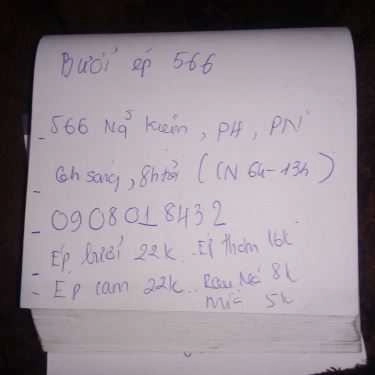 Bưởi ép 566
- 566 Ng Kiệm, P4, PN
- 6h sáng, 8h tối (CN 6h-13h)
- 0908018432
- Ép bưởi 22k.. Ép thơm 16k
- Ép cam 22k.. Rau Má 8k
Mía 5k